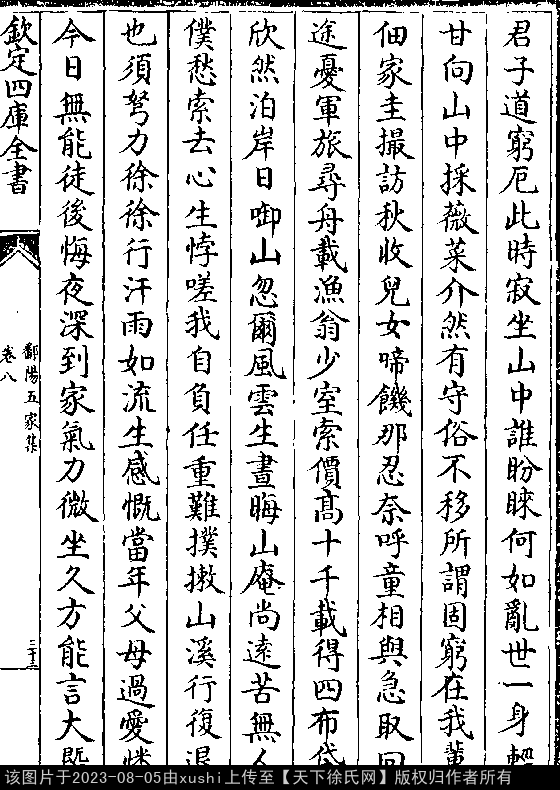 君子道窮厄此時寂坐山中誰盼睞何如亂世一身輕
甘向山中採薇菜介然有守俗不移所謂固窮在我輩
佃家圭撮訪秋收兒女啼饑那忍奈呼童相與急取回
途憂軍旅尋舟載漁翁少室索價高十千載得四布袋
欣然泊岸日啣山忽爾風雲生晝晦山庵尚遠苦無人
僕愁索去心生悖嗟我自負任重難撲擻山溪行復退
也須努力徐徐行汗雨如流生感慨當年父母過愛
今日無能徒後悔夜深到家氣力微坐久方能言大
欽定四庫全書
鄱陽五家集
卷八
三十三
该图片于2023-08-05由xushi上传至【天下徐氏网】版权归作者所有